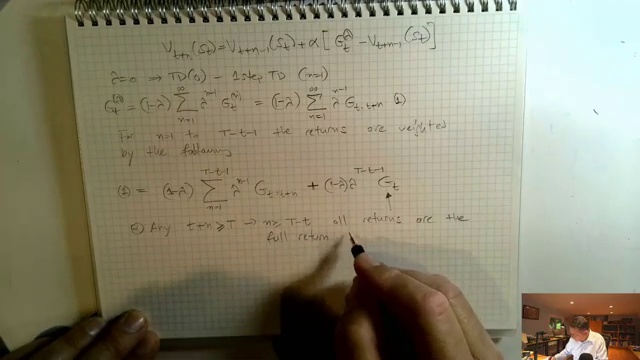 V_{t+n}(S_t) = V_{t+n-1}(S_t) + α [ G_t^{(λ)} - V_{t+n-1}(S_t) ]
λ=0 ⇒ TD(0) - 1 step TD (n=1)
G_t^{(λ)} = (1-λ) ∑_{n=1}^{∞} λ^{n-1} G_t^{(n)} = (1-λ) ∑_{n=1}^{∞} λ^{n-1} G_{t:t+n} (1)
For n=1 to T-t-1 the returns are weighted
by the following
(1) = (1-λ) ∑_{n=1}^{T-t-1} λ^{n-1} G_{t:t+n} + (1-λ) λ^{T-t-1} G_t
Any t+n ≥ T → n ≥ T-t all returns are the
full return